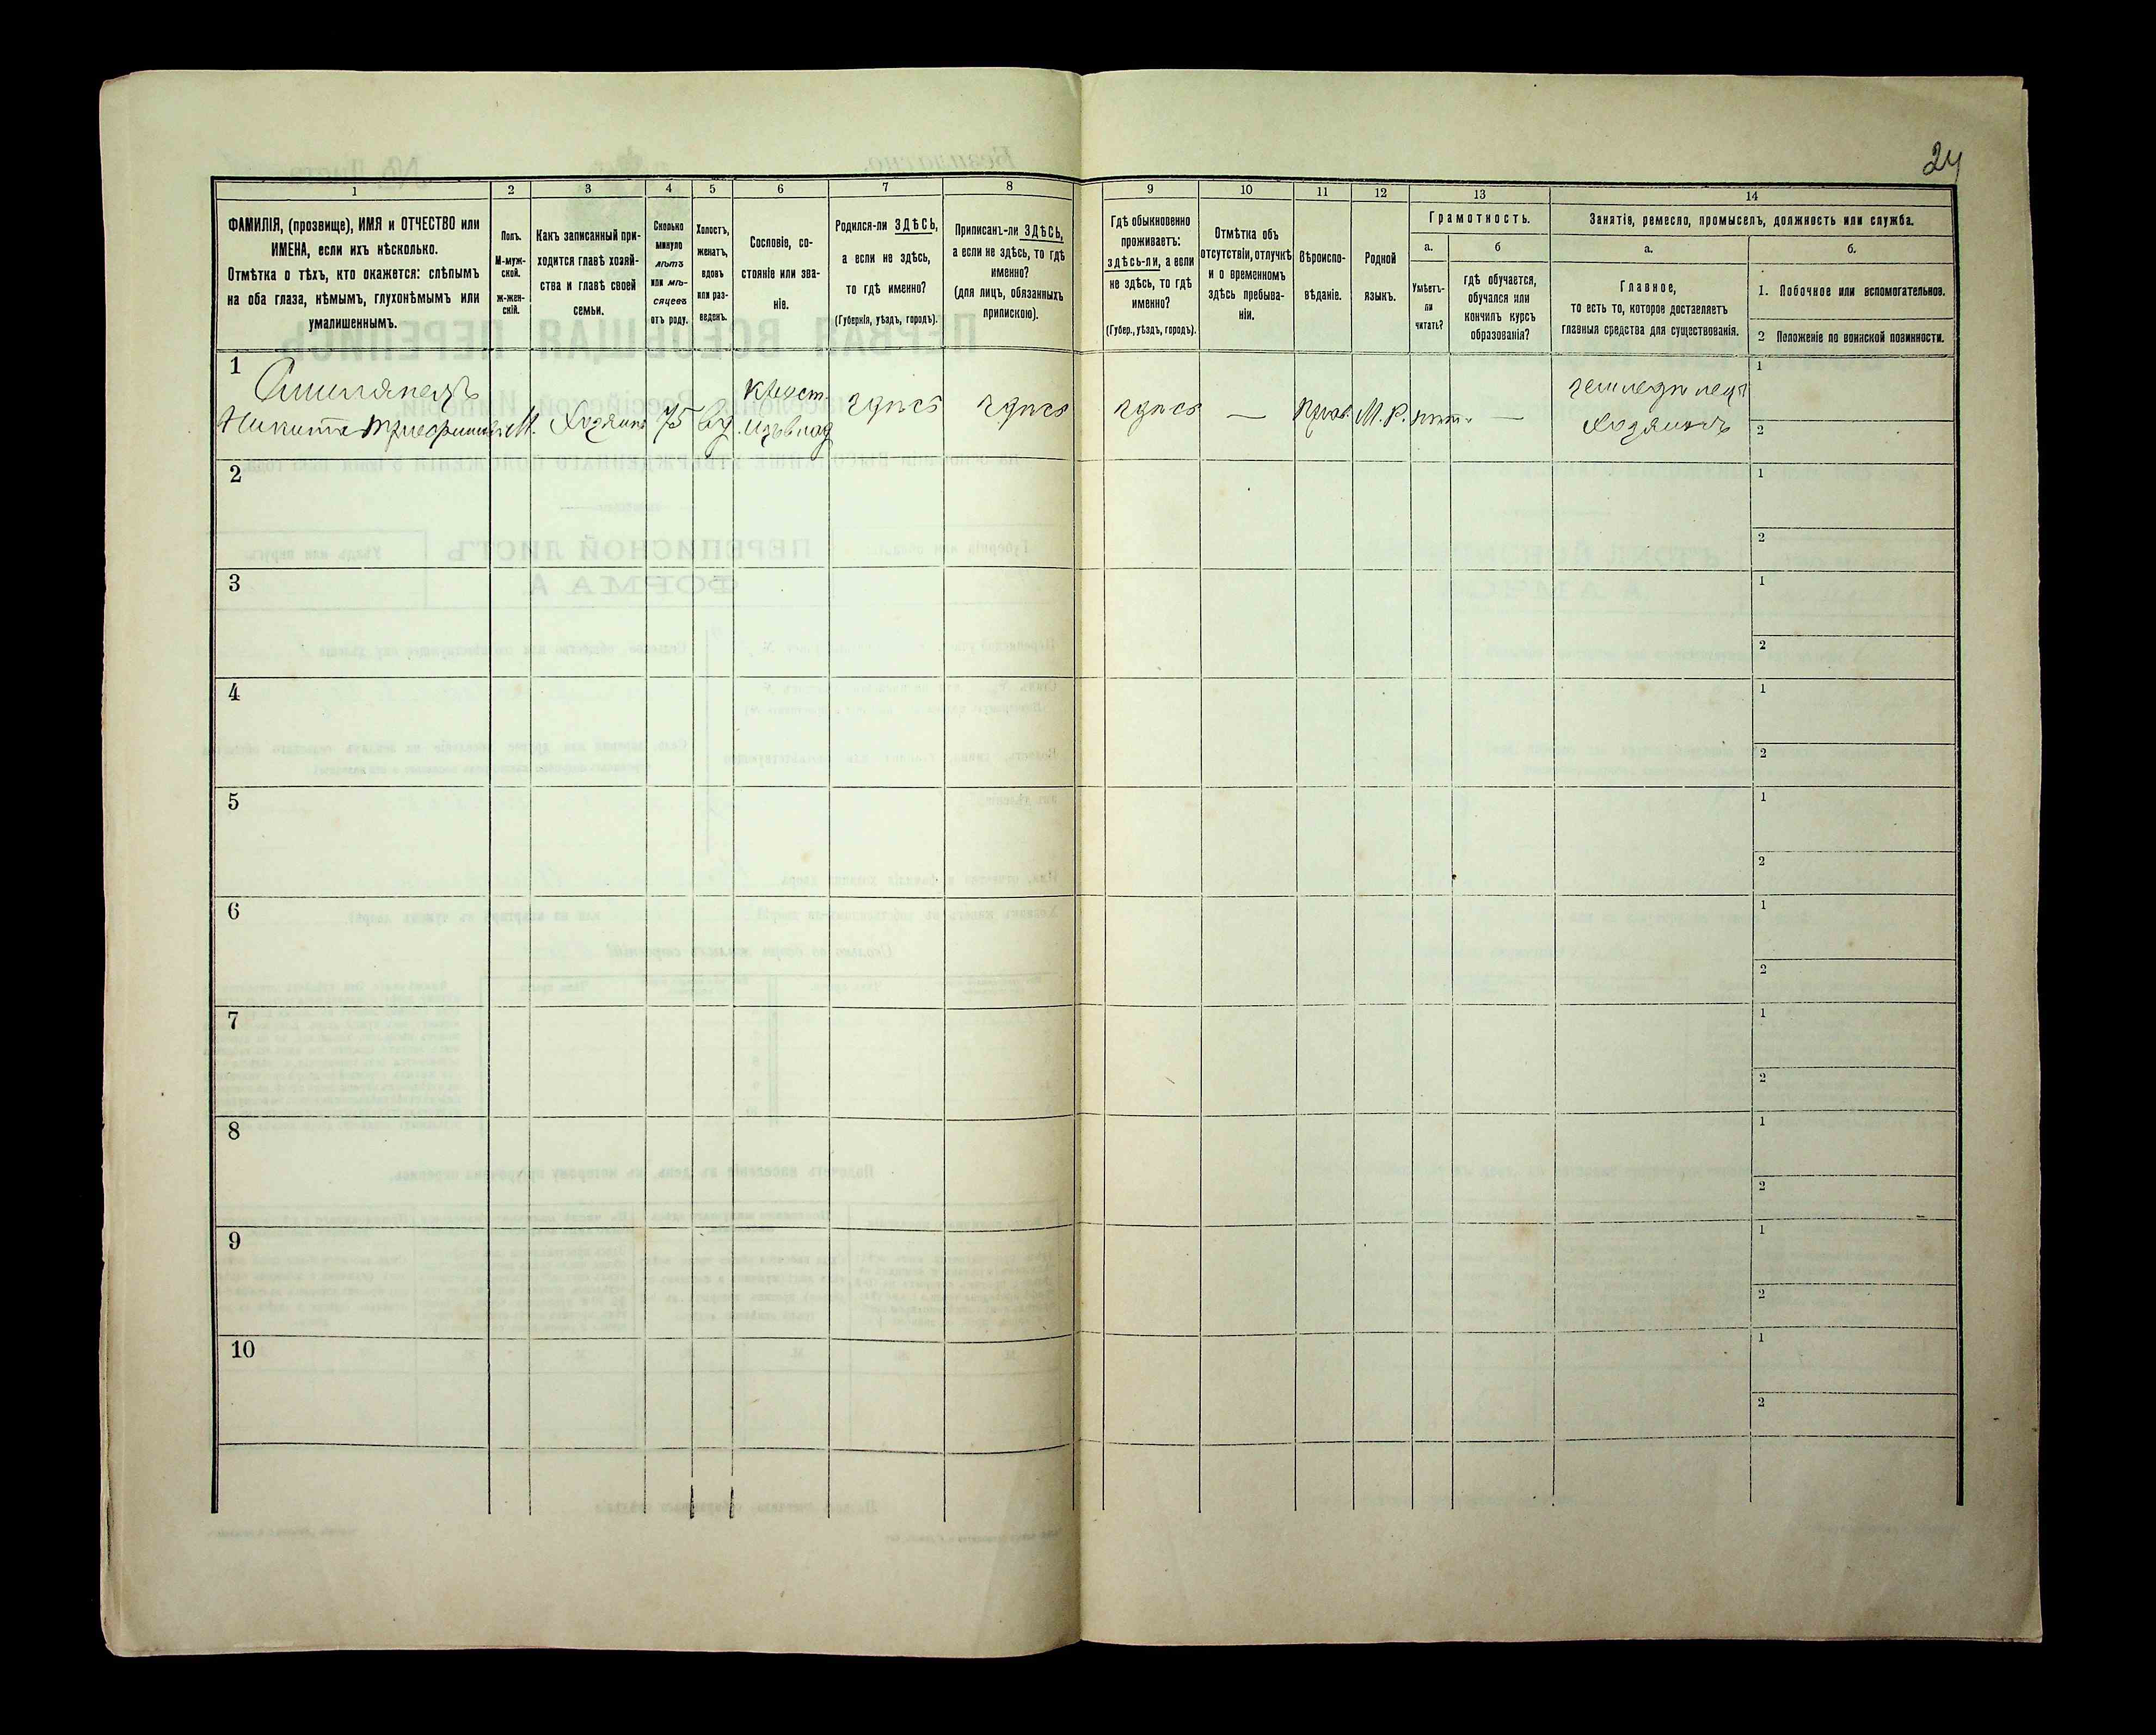 24
1 2 3 4 5 6 7 8 9 10 11 12 13 14
ФАМИЛІЯ, (прозвище), ИМЯ и ОТЧЕСТВО или
ИМЕНА, если ихъ нѣсколько.
Отмѣтка о тѣхъ, кто окажется: слѣпымъ
на оба глаза, нѣмымъ, глухонѣмымъ или
умалишеннымъ.
Полъ.
М-муж-
ской.
ж-жен-
скій.
Какъ записанный при-
ходится главѣ хозяй-
ства и главѣ своей
семьи.
Сколько
минуло
лѣтъ
или мѣ-
сяцевъ
отъ роду.
Холостъ,
женатъ,
вдовъ
или раз-
веденъ.
Сословіе, со-
стояніе или зва-
ніе.
Родился-ли ЗДѢСЬ,
а если не здѣсь,
то гдѣ именно?
(Губернія, уѣздъ, городъ).
Приписанъ-ли ЗДѢСЬ,
а если не здѣсь, то гдѣ
именно?
(для лицъ, обязанныхъ
припискою).
Гдѣ обыкновенно
проживаетъ:
здѣсь-ли, а если
не здѣсь, то гдѣ
именно?
(Губер., уѣздъ, городъ).
Отмѣтка объ
отсутствіи, отлучкѣ
и о временномъ
здѣсь пребыва-
ніи.
Вѣроиспо-
вѣданіе.
Родной
языкъ.
Грамотность.
а.
Умѣетъ-
ли
читать?
б
гдѣ обучается,
обучался или
кончилъ курсъ
образованія?
Занятіе, ремесло, промыселъ, должность или служба.
а.
Главное,
то есть то, которое доставляетъ
главныя средства для существованія.
б.
1. Побочное или вспомогательное.
2 Положеніе по воинской повинности.
1
Никита Григориевъ М. Хозяинъ 75 Вд Крест. здѣсь здѣсь здѣсь — Прав. М.Р. нѣтъ —
Хозяинъ
1
2
2
1
2
3
1
2
4
1
2
5
1
2
6
1
2
7
1
2
8
1
2
9
1
2
10
1
2